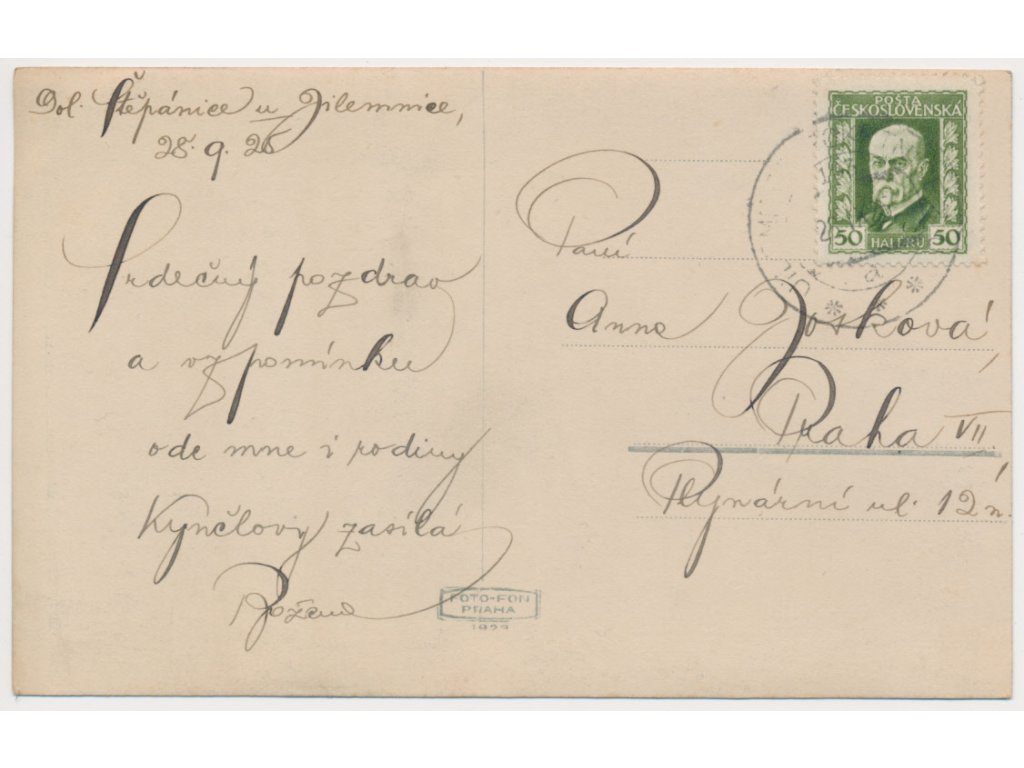 Dol. Štěpánice u Jilemnice,
28. 9. 26
Srdečný pozdrav
a vzpomínku
ode mne i rodiny
Kynčlovy zasílá
Božena
POŠTA
ČESKOSLOVENSKÁ
50 HALÉŘŮ 50
Paní
Anna Josková,
Praha VII.
Plynární ul. 12 n.
FOTO-FON
PRAHA
1923